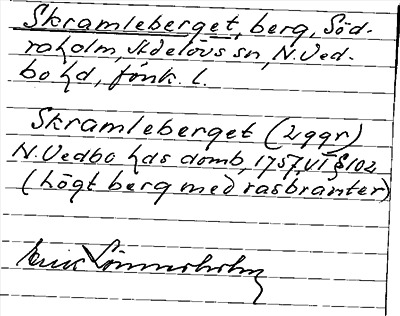 Skramleberget, berg, Söd-
raholm, Adelövs sn, N. Ved-
bo hd, Jönk. l.
Skramleberget (2 ggr)
N. Vedbo hds domb, 1757, VI § 102
(högt berg med rasbranter)
Erik